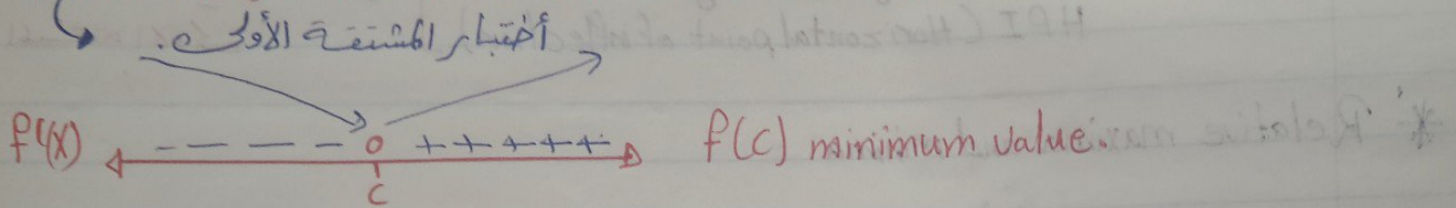 أختبار المشتقة الأولى.
f'(x) - - - - 0 + + + + + f(c) minimum value.
c